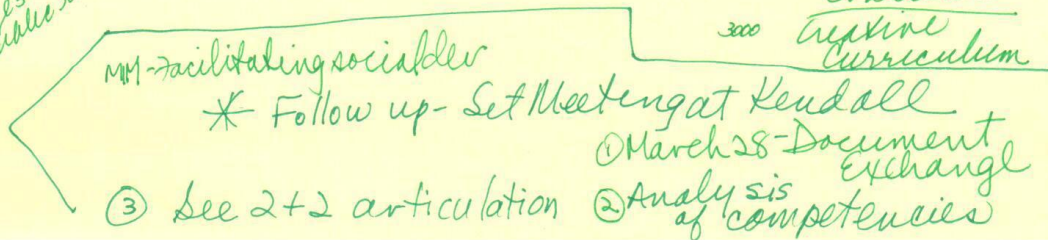 3000 Creative
Curriculum
MM-Facilitating social dev
* Follow up - Set Meeting at Kendall
① March 28 - Document
Exchange
③ See 2+2 articulation ② Analysis
of competencies